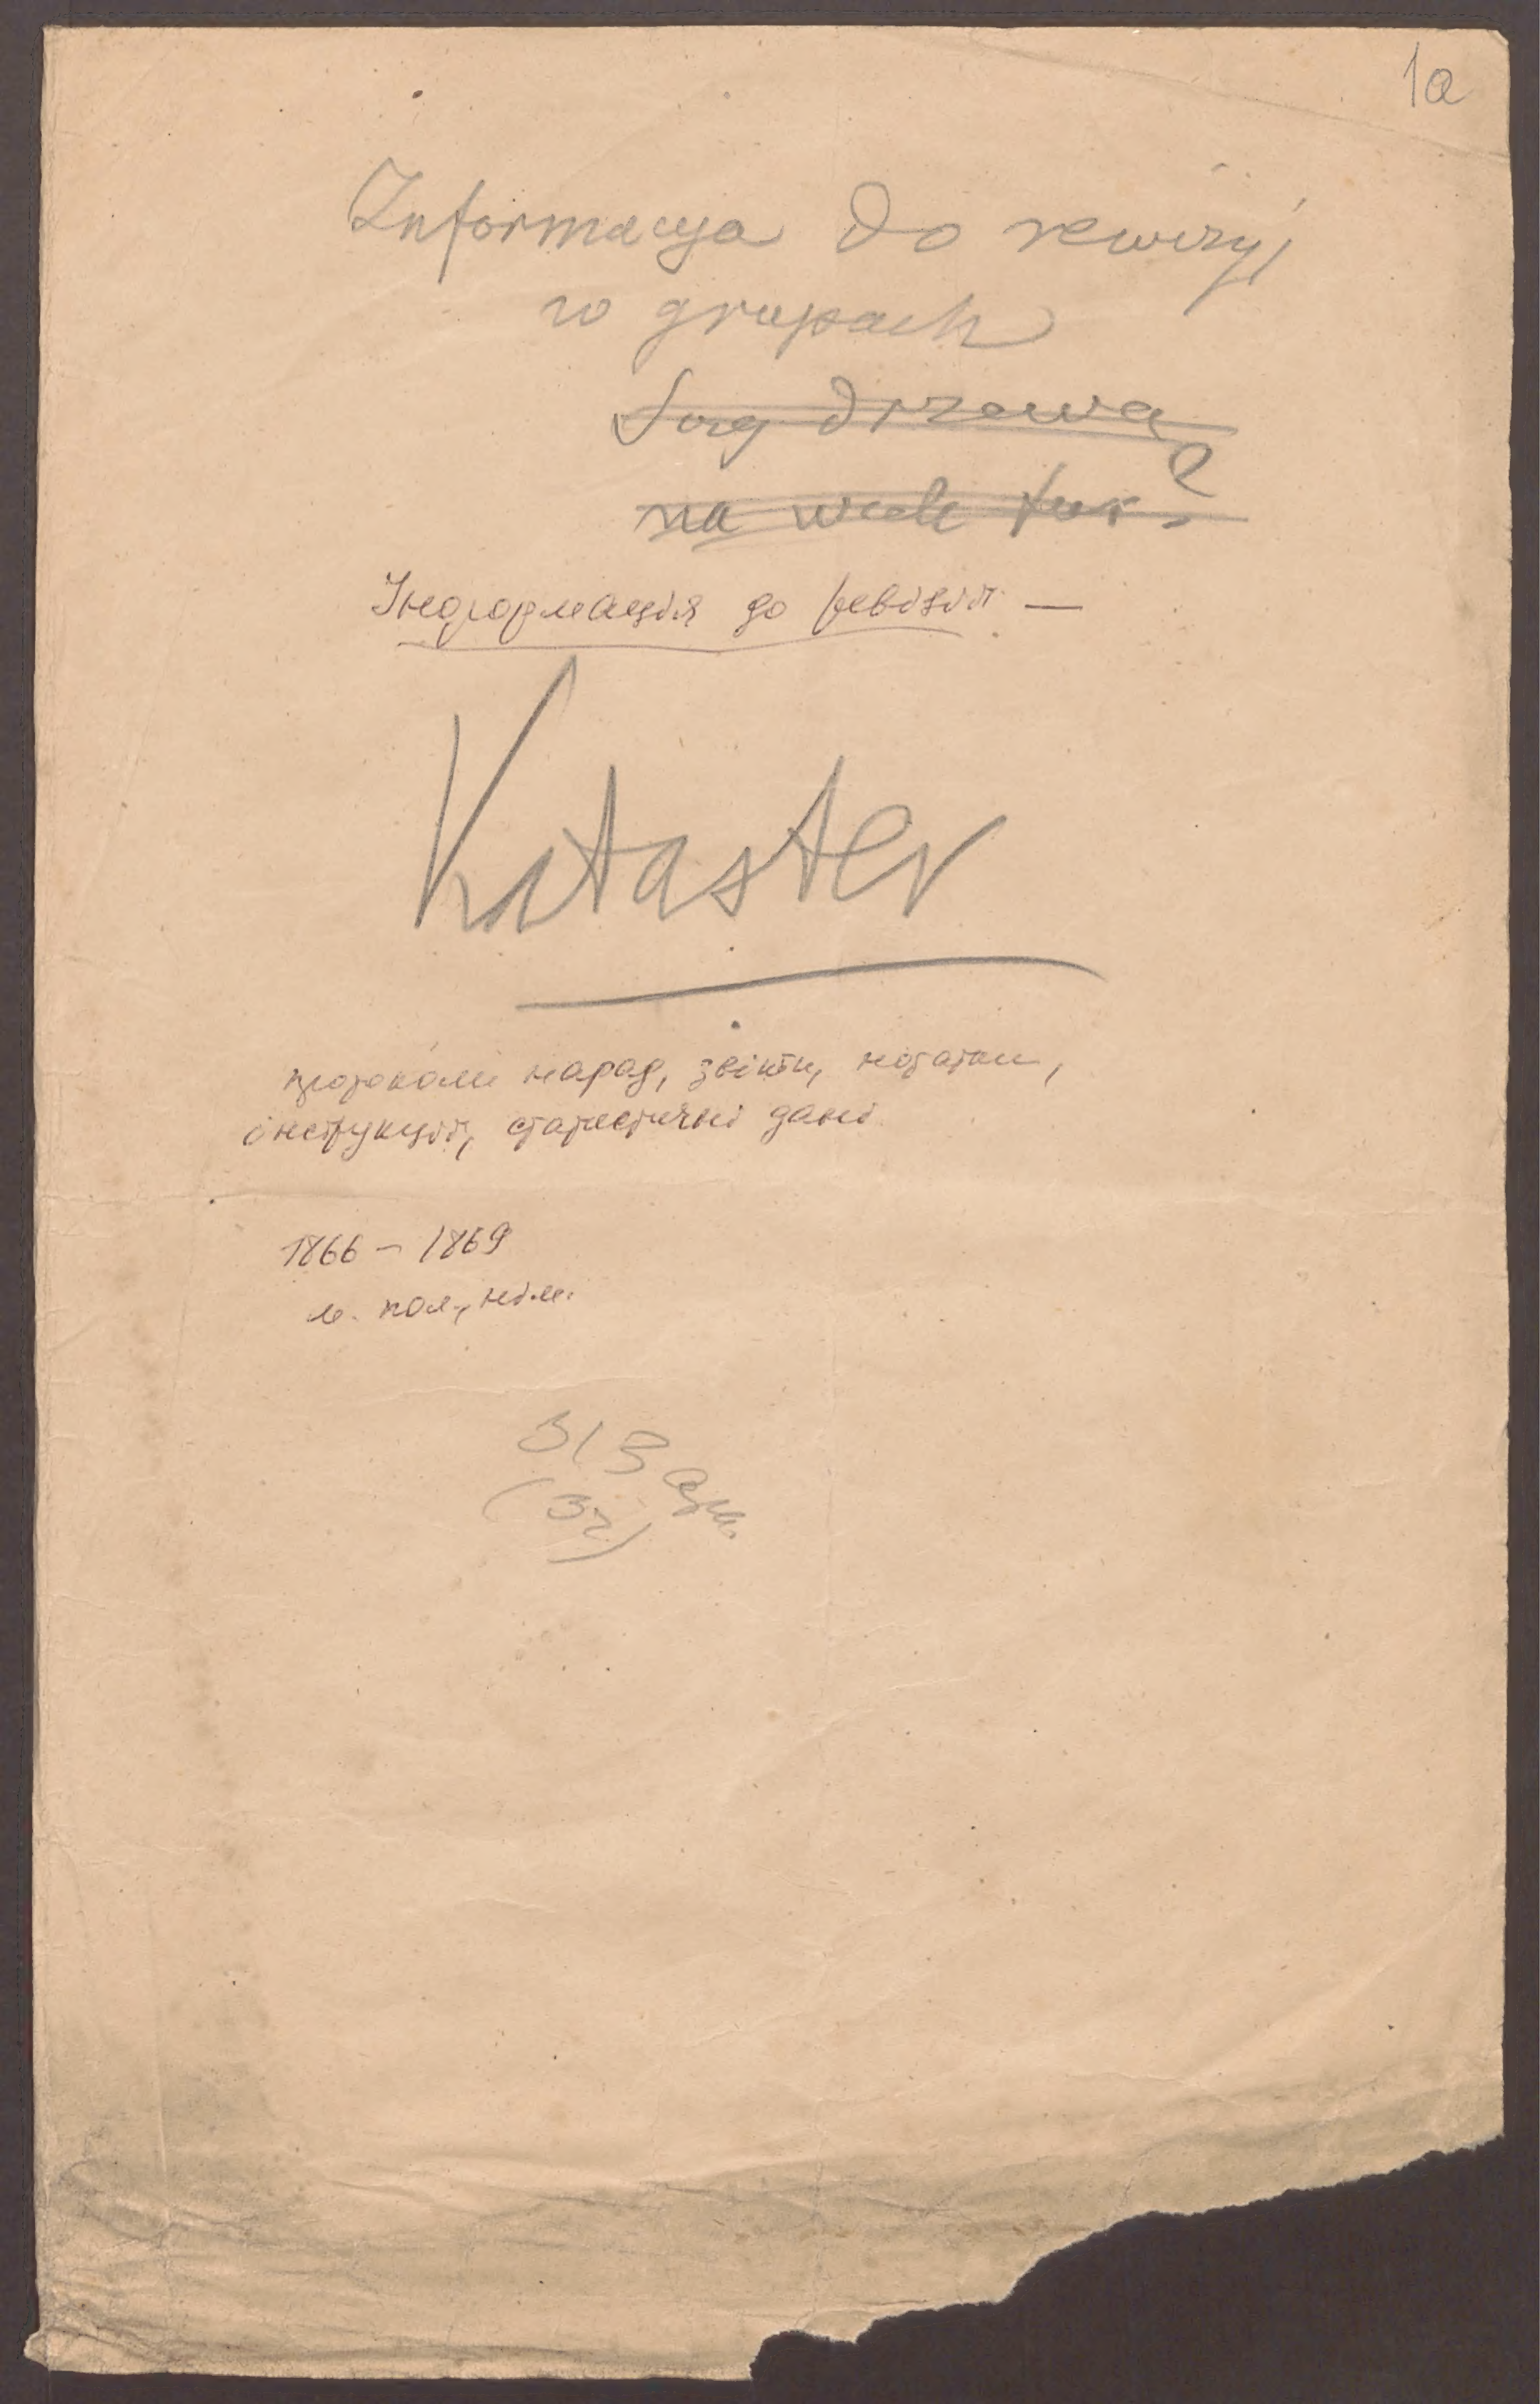 1a
Informacya do rewizyj
w grupach
drzewa
na
Інформація до ревізії —
Kataster
протоколи нарад, звіти, нотатки,
інструкції, статистичні дані
1866 – 1869
м. пол., нім.
313 арк.
(32)